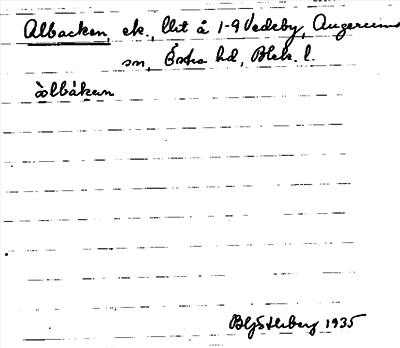 Albacken, ek., lht å 1-9 Vedeby, Augerums
sn, Östra hd, Blek. l.
àlbákan
B Hj Österberg 1935